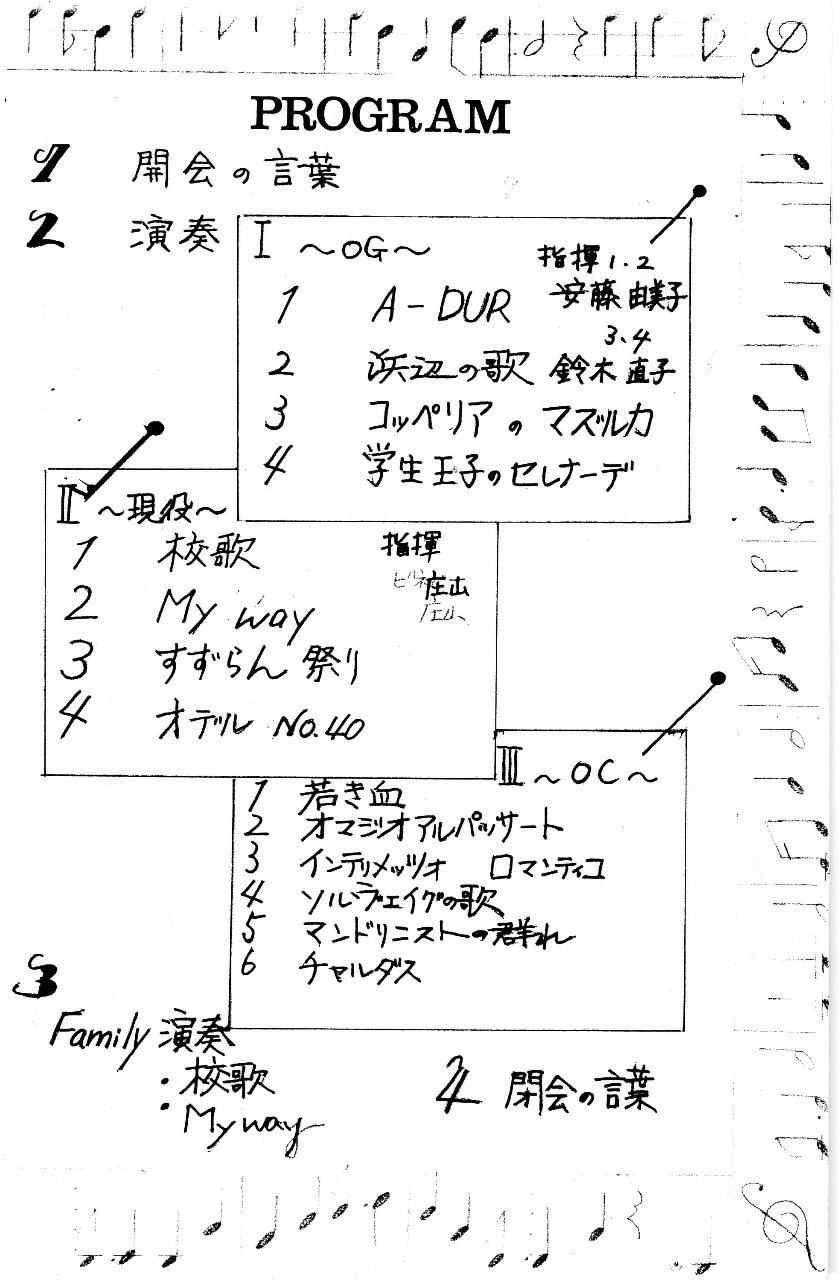 PROGRAM
1 開会の言葉
2 演奏
I ～OG～
指揮 1.2
安藤 由美子
3.4
鈴木 直子
1 A-DUR
2 浜辺の歌
3 コッペリアの マズルカ
4 学生王子のセレナーデ
II ～現役～
指揮
庄山
1 校歌
2 My way
3 すずらん 祭り
4 オデル No.40
III ～OC～
1 若き血
2 オマジオアルパッサート
3 インテリメッツォ ロマンティコ
4 ソルヴェイグの歌
5 マンドリニストの群れ
6 チャルダス
3
Family 演奏
・校歌
・My way
4 閉会の言葉